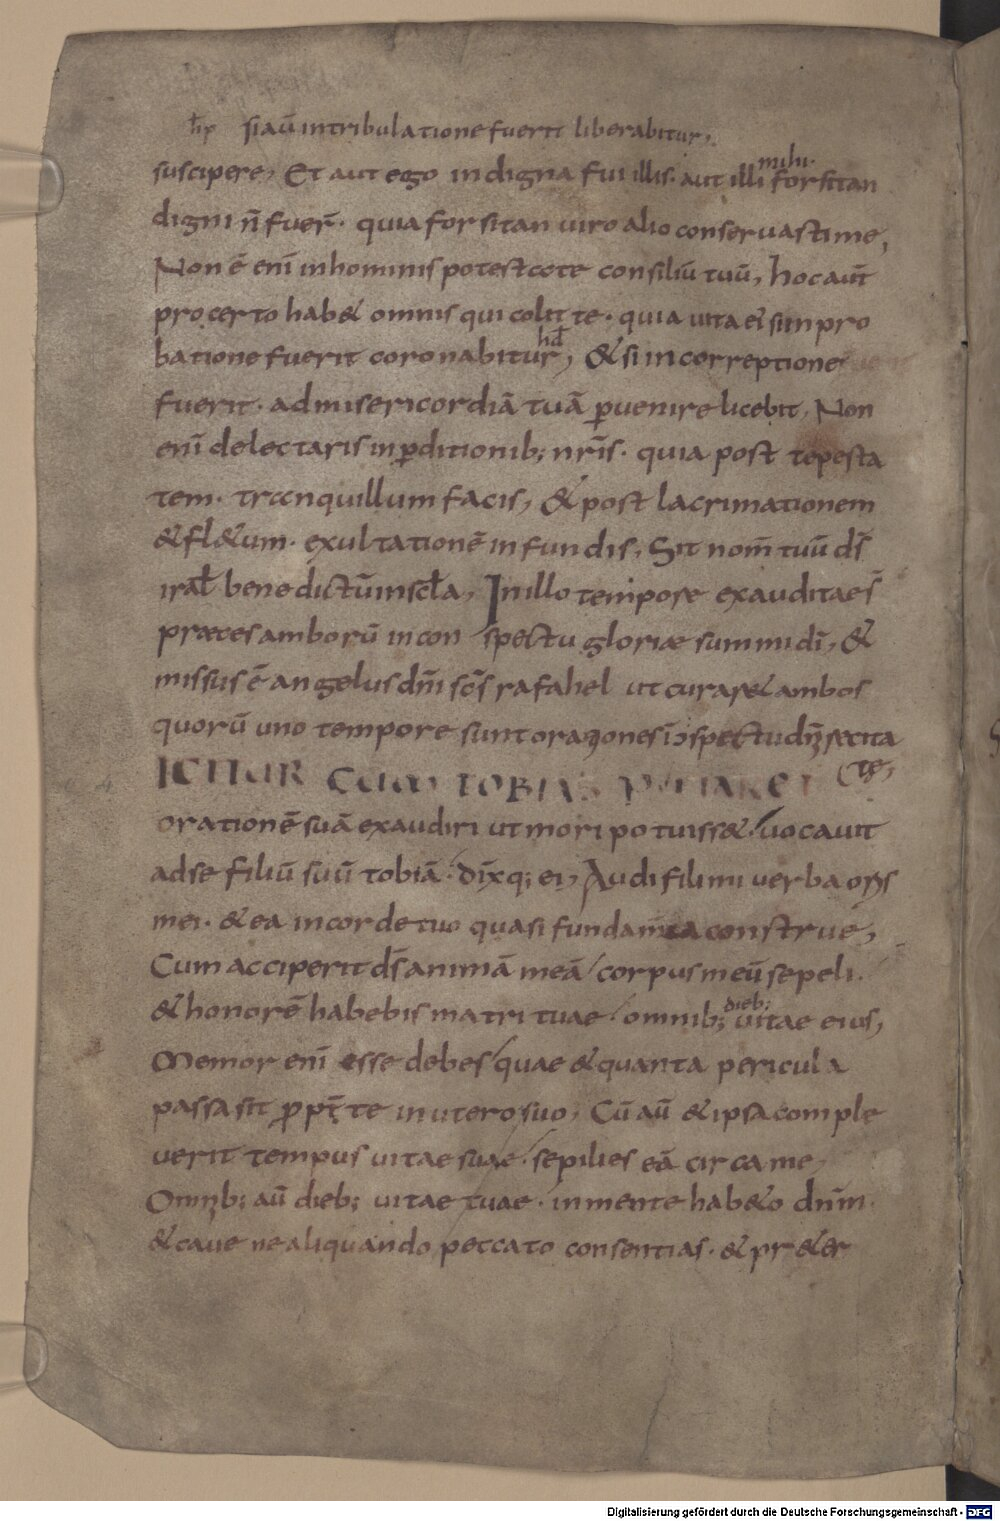 hp siaū intribulatione fuerit liberabitur,
suscipere, Et aut ego indigna fui illis. aut illi mihi· forsitan
digni n̄ fuer̄· quia forsitan uiro alio conseruasti me,
Non ē eni͞ inhominis potestate consiliū tuū, hoc aut̄
pro certo hab& omnis qui colit te· quia uita ei si in pro
batione fuerit coronabitur, hd &si incorreptione
fuerit· admisericordiā tuā ꝑuenire licebit, Non
eni͞ delectaris inꝑditionib; nr̄is· quia post tepesta
tem· tranquillum facis, & post lacrimationem
&fl&um· exultationē infundis, Sit nom̄ tuū ds̄
isrl̄ benedictū inscl̄a, Inillo tempore exauditae s̄
præces amborū incon spectu gloriæ summi dī, &
missus ē angelus dn̄i sc̄s rafahel ut curar& ambos
quorū uno tempore sunt orationes
IGITUR CUM TOBIAS PUTARET
orationē suā exaudiri ut mori potuiss& uocauit
adse filiū suū tobiā· dix̄q; ei, Audi fili mi uerba oris
mei· & ea incorde tuo quasi fundam̄ta construe,
Cum acceperit ds̄ animā meā corpus meū sepeli.
& honorē habebis matri tuae omnib; dieb; uitae eius,
Memor eni͞ esse debes quae & quanta pericula
passa sit ꝓpt̄ te in utero suo, Cū aū & ipsa comple
uerit tempus uitae suae· sepilies eā circa me,
Omnib; aū dieb; uitae tuae· inmente hab&o dn̄m·
& caue ne aliquando peccato consentias· & præ&er
Digitalisierung gefördert durch die Deutsche Forschungsgemeinschaft - DFG